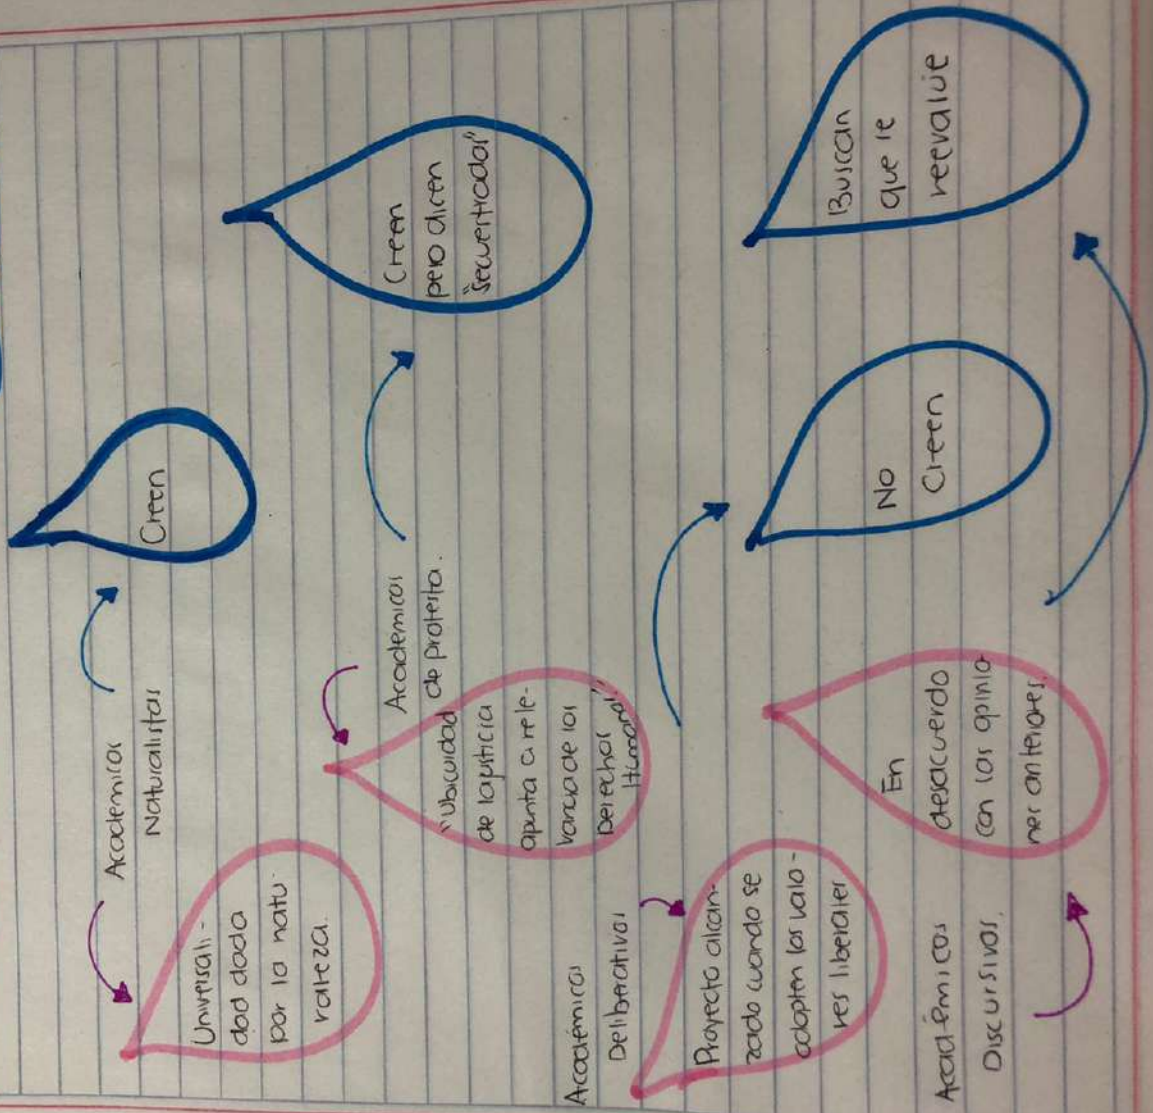 Académicos
Naturalistas
Universali-
dad dada
por la natu
raleza.
Creen
Académicos
de protesta.
"Ubicuidad
de lapisticia
apunta a rele-
vancia de los
Derechos
Humanos"
Creen
pero dicen
"Secuestrados"
Académicos
Deliberativos
Proyecto alcan-
zado cuando se
adopten los valo-
res liberales
No
Creen
Académicos
Discursivos.
En
desacuerdo
con las opinio-
nes anteriores.
Buscan
que se
reevalúe